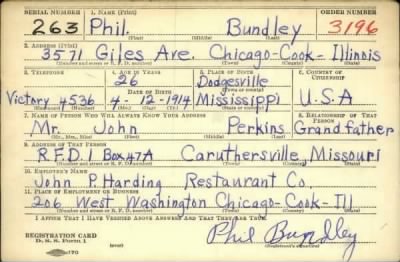 SERIAL NUMBER 1. NAME (Print) ORDER NUMBER
263 Phil Bundley 3196
(First) (Middle) (Last)
2. ADDRESS (Print)
3571 Giles Ave. Chicago-Cook-Illinois
(Number and street or R. F. D. number) (Town) (County) (State)
3. TELEPHONE 4. AGE IN YEARS 5. PLACE OF BIRTH 6. COUNTRY OF CITIZENSHIP
26 Dodgesville
DATE OF BIRTH (Town or county)
Victory 4536 4-12-1914 Mississippi U.S.A
(Mo.) (Day) (Yr.) (State or country)
7. NAME OF PERSON WHO WILL ALWAYS KNOW YOUR ADDRESS 8. RELATIONSHIP OF THAT PERSON
Mr. John Perkins Grandfather
(Mr., Mrs., Miss) (First) (Middle) (Last)
9. ADDRESS OF THAT PERSON
R.F.D.1 Box 47A Caruthersville, Missouri
(Number and street or R. F. D. number) (Town) (County) (State)
10. EMPLOYER'S NAME
John P. Harding Restaurant Co.
11. PLACE OF EMPLOYMENT OR BUSINESS
206 West Washington Chicago-Cook-Ill
(Number and street or R. F. D. number) (Town) (County) (State)
I AFFIRM THAT I HAVE VERIFIED ABOVE ANSWERS AND THAT THEY ARE TRUE.
REGISTRATION CARD
D. S. S. Form 1 (over) Phil Bundley
(Registrant's signature)